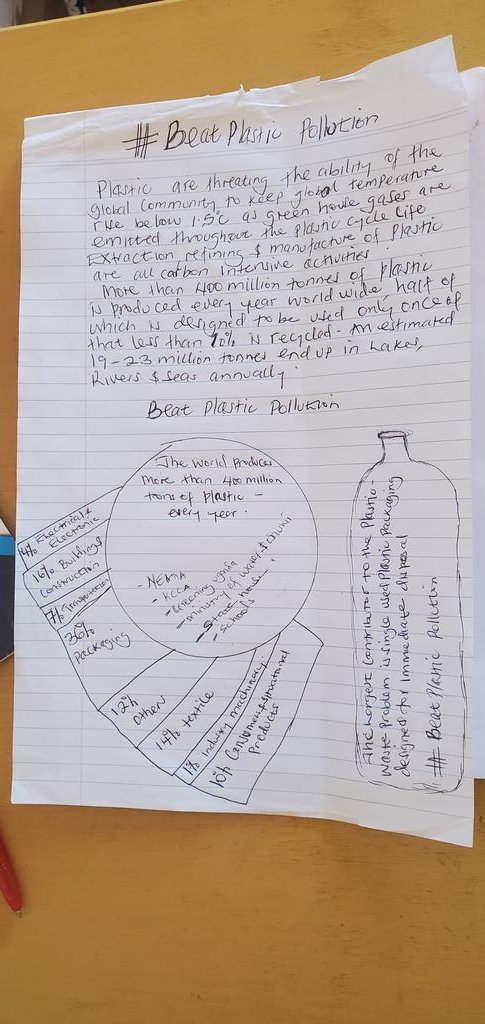 # Beat Plastic Pollution
Plastic are threating the ability of the
global Community to keep global temperature
rise below 1.5°c as green houle gases are
emitted throughout the plastic cycle life
Extraction, refining & manufacture of Plastic
are all carbon intensive activities.
More than 400 million tonnes of plastic
is produced every year world wide half of
which is designed to be used only once of
that less than 10% is recycled - An estimated
19-23 million tonnes end up in Lakes,
Rivers & seas annually.
Beat Plastic Pollution
The World Produces
More than 400 million
tons of plastic -
every year.
NEMA
- KCCA
- Greening
- ministry of water &
- State house
- schools
4% Electrical &
Electronic
16% Buildings
Construction
7% Transportation
36%
Packaging
12%
Others
14% textile
1% Industry machinery
10% Consumer &
Products
The largest Contributor to the Plastic-
Waste Problem is single used Plastic Packaging
designed for Immediate disposal
# Beat Plastic Pollution